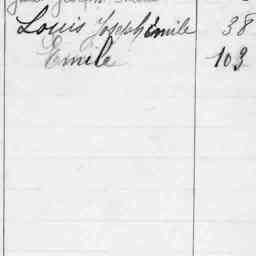 Louis Joseph Emile 38
Emile 103